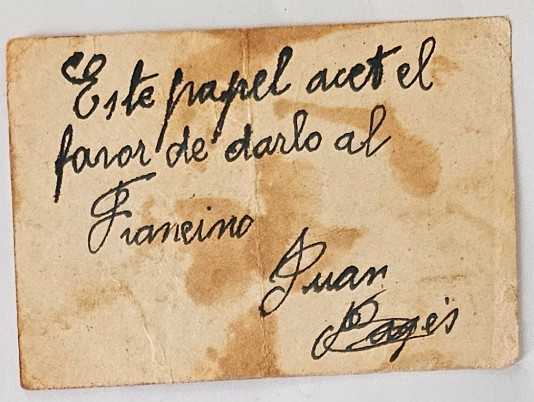 Este papel acet el
favor de darlo al
Francino
Juan
Pagés